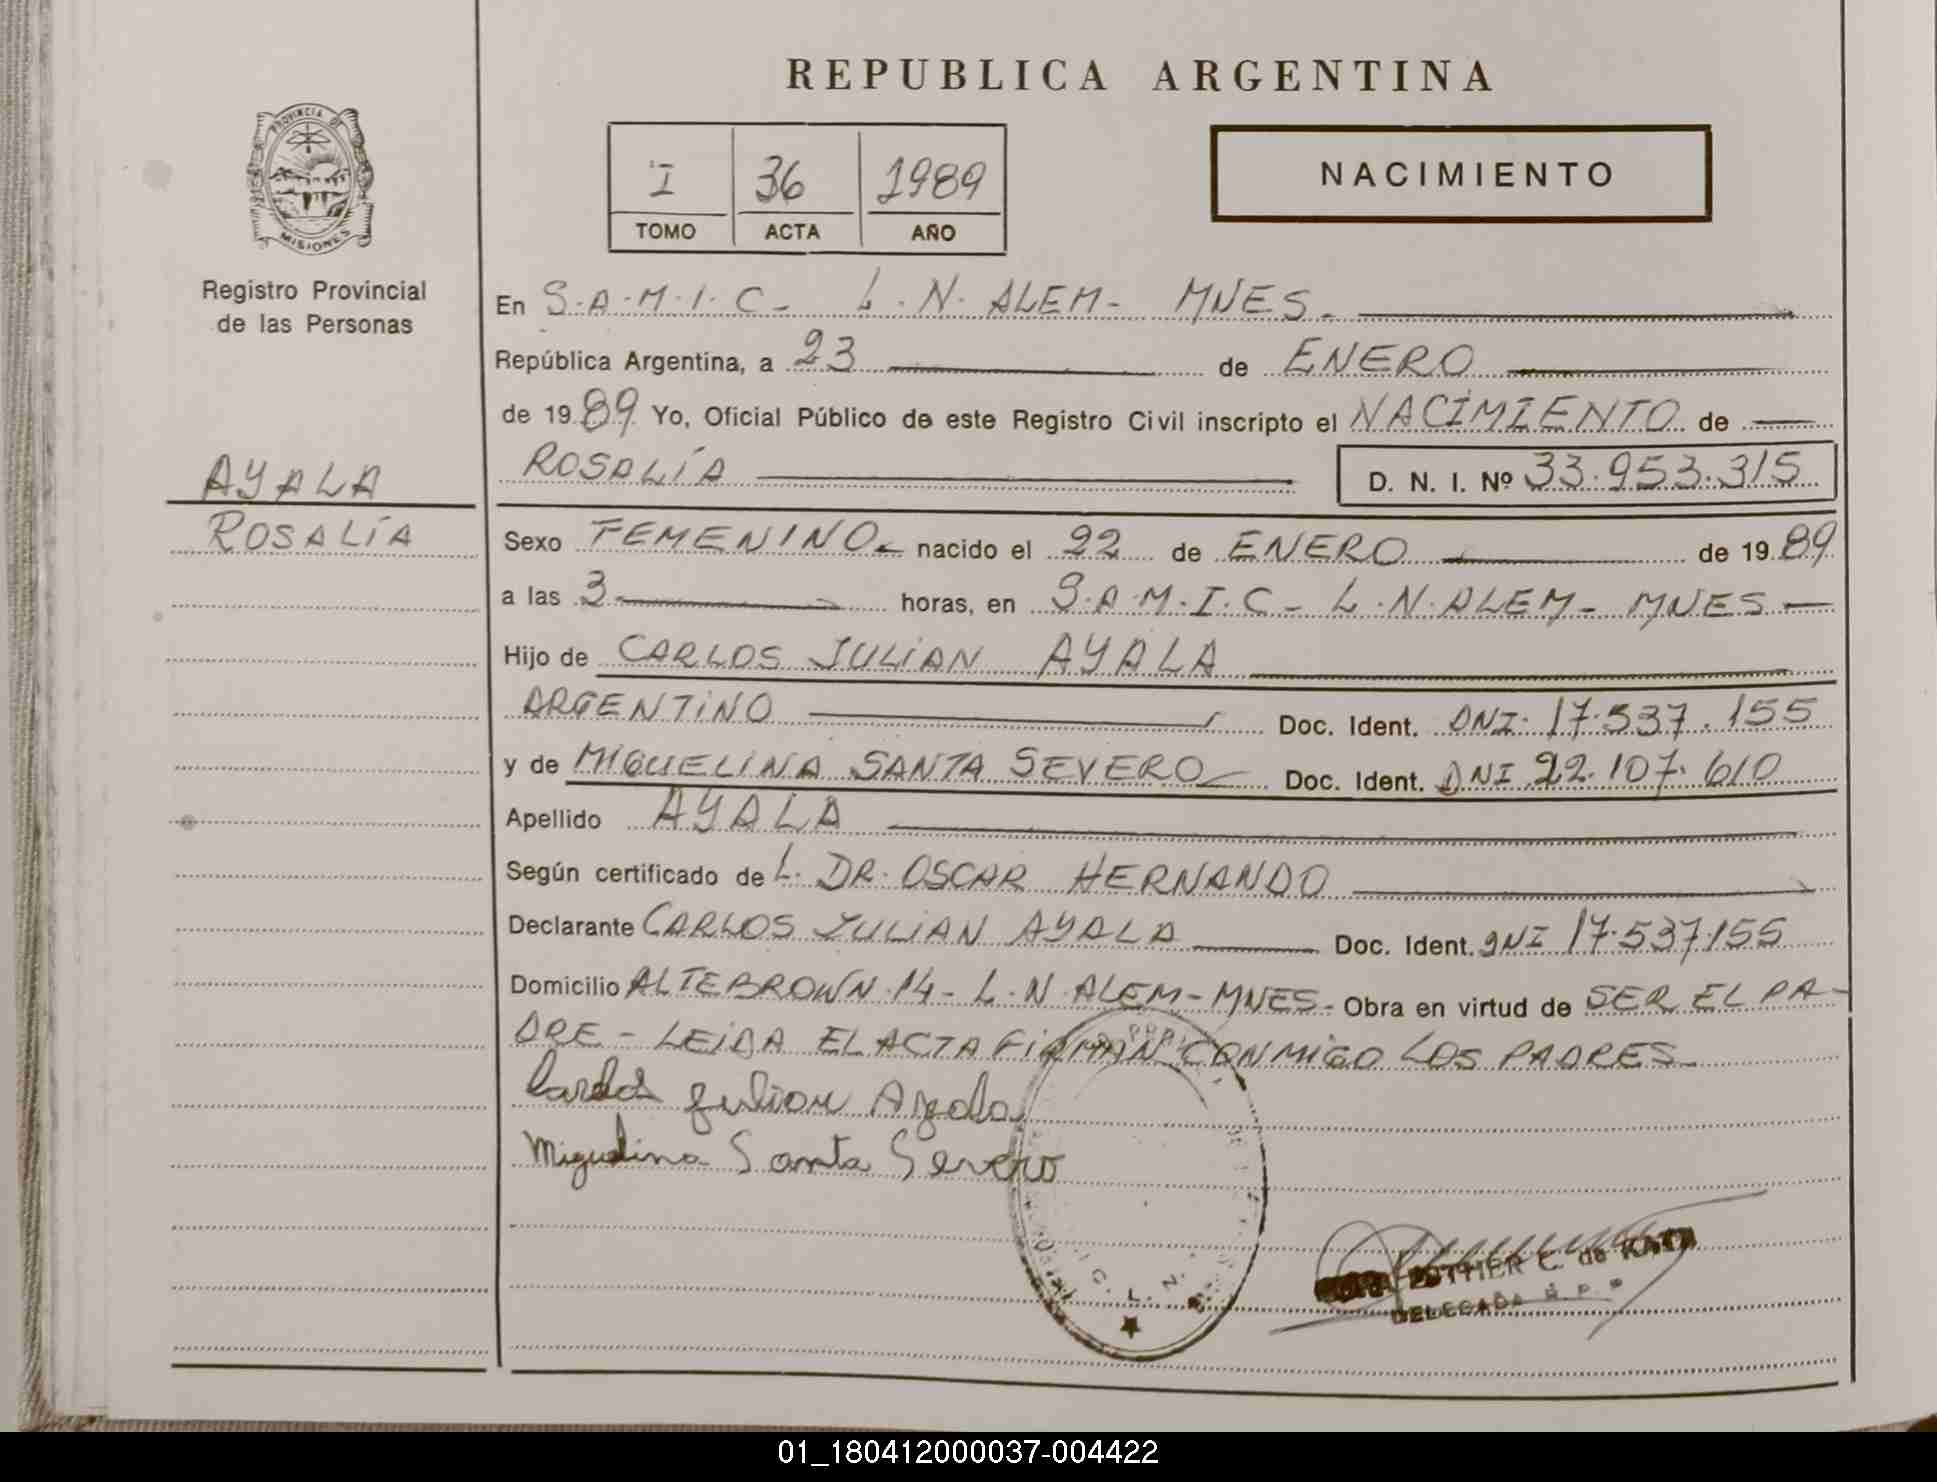 REPUBLICA ARGENTINA
PROVINCIA DE
MISIONES
Registro Provincial
de las Personas
I 36 1989
TOMO ACTA AÑO
NACIMIENTO
En S.A.M.I.C- L.N.ALEM- MNES.
República Argentina, a 23 de ENERO
de 1989 Yo, Oficial Público de este Registro Civil inscripto el NACIMIENTO de
AYALA
ROSALÍA
ROSALÍA D. N. I. Nº 33.953.315
Sexo FEMENINO nacido el 22 de ENERO de 1989
a las 3 horas, en S.A.M.I.C- L.N.ALEM- MNES-
Hijo de CARLOS JULIAN AYALA
ARGENTINO Doc. Ident. DNI. 17.537.155
y de MIGUELINA SANTA SEVERO Doc. Ident. DNI 22.107.610
Apellido AYALA
Según certificado de L. DR. OSCAR HERNANDO
Declarante CARLOS JULIAN AYALA Doc. Ident. DNI 17.537155
Domicilio ALTEBROWN.14- L.N.ALEM-MNES- Obra en virtud de SER EL PA-
DRE- LEIDA EL ACTA FIRMAN CONMIGO LOS PADRES-
Carlos Julian Ayala
Miguelina Santa Severo
ESTHER C. de
DELEGADA R.P.P
01_180412000037-004422